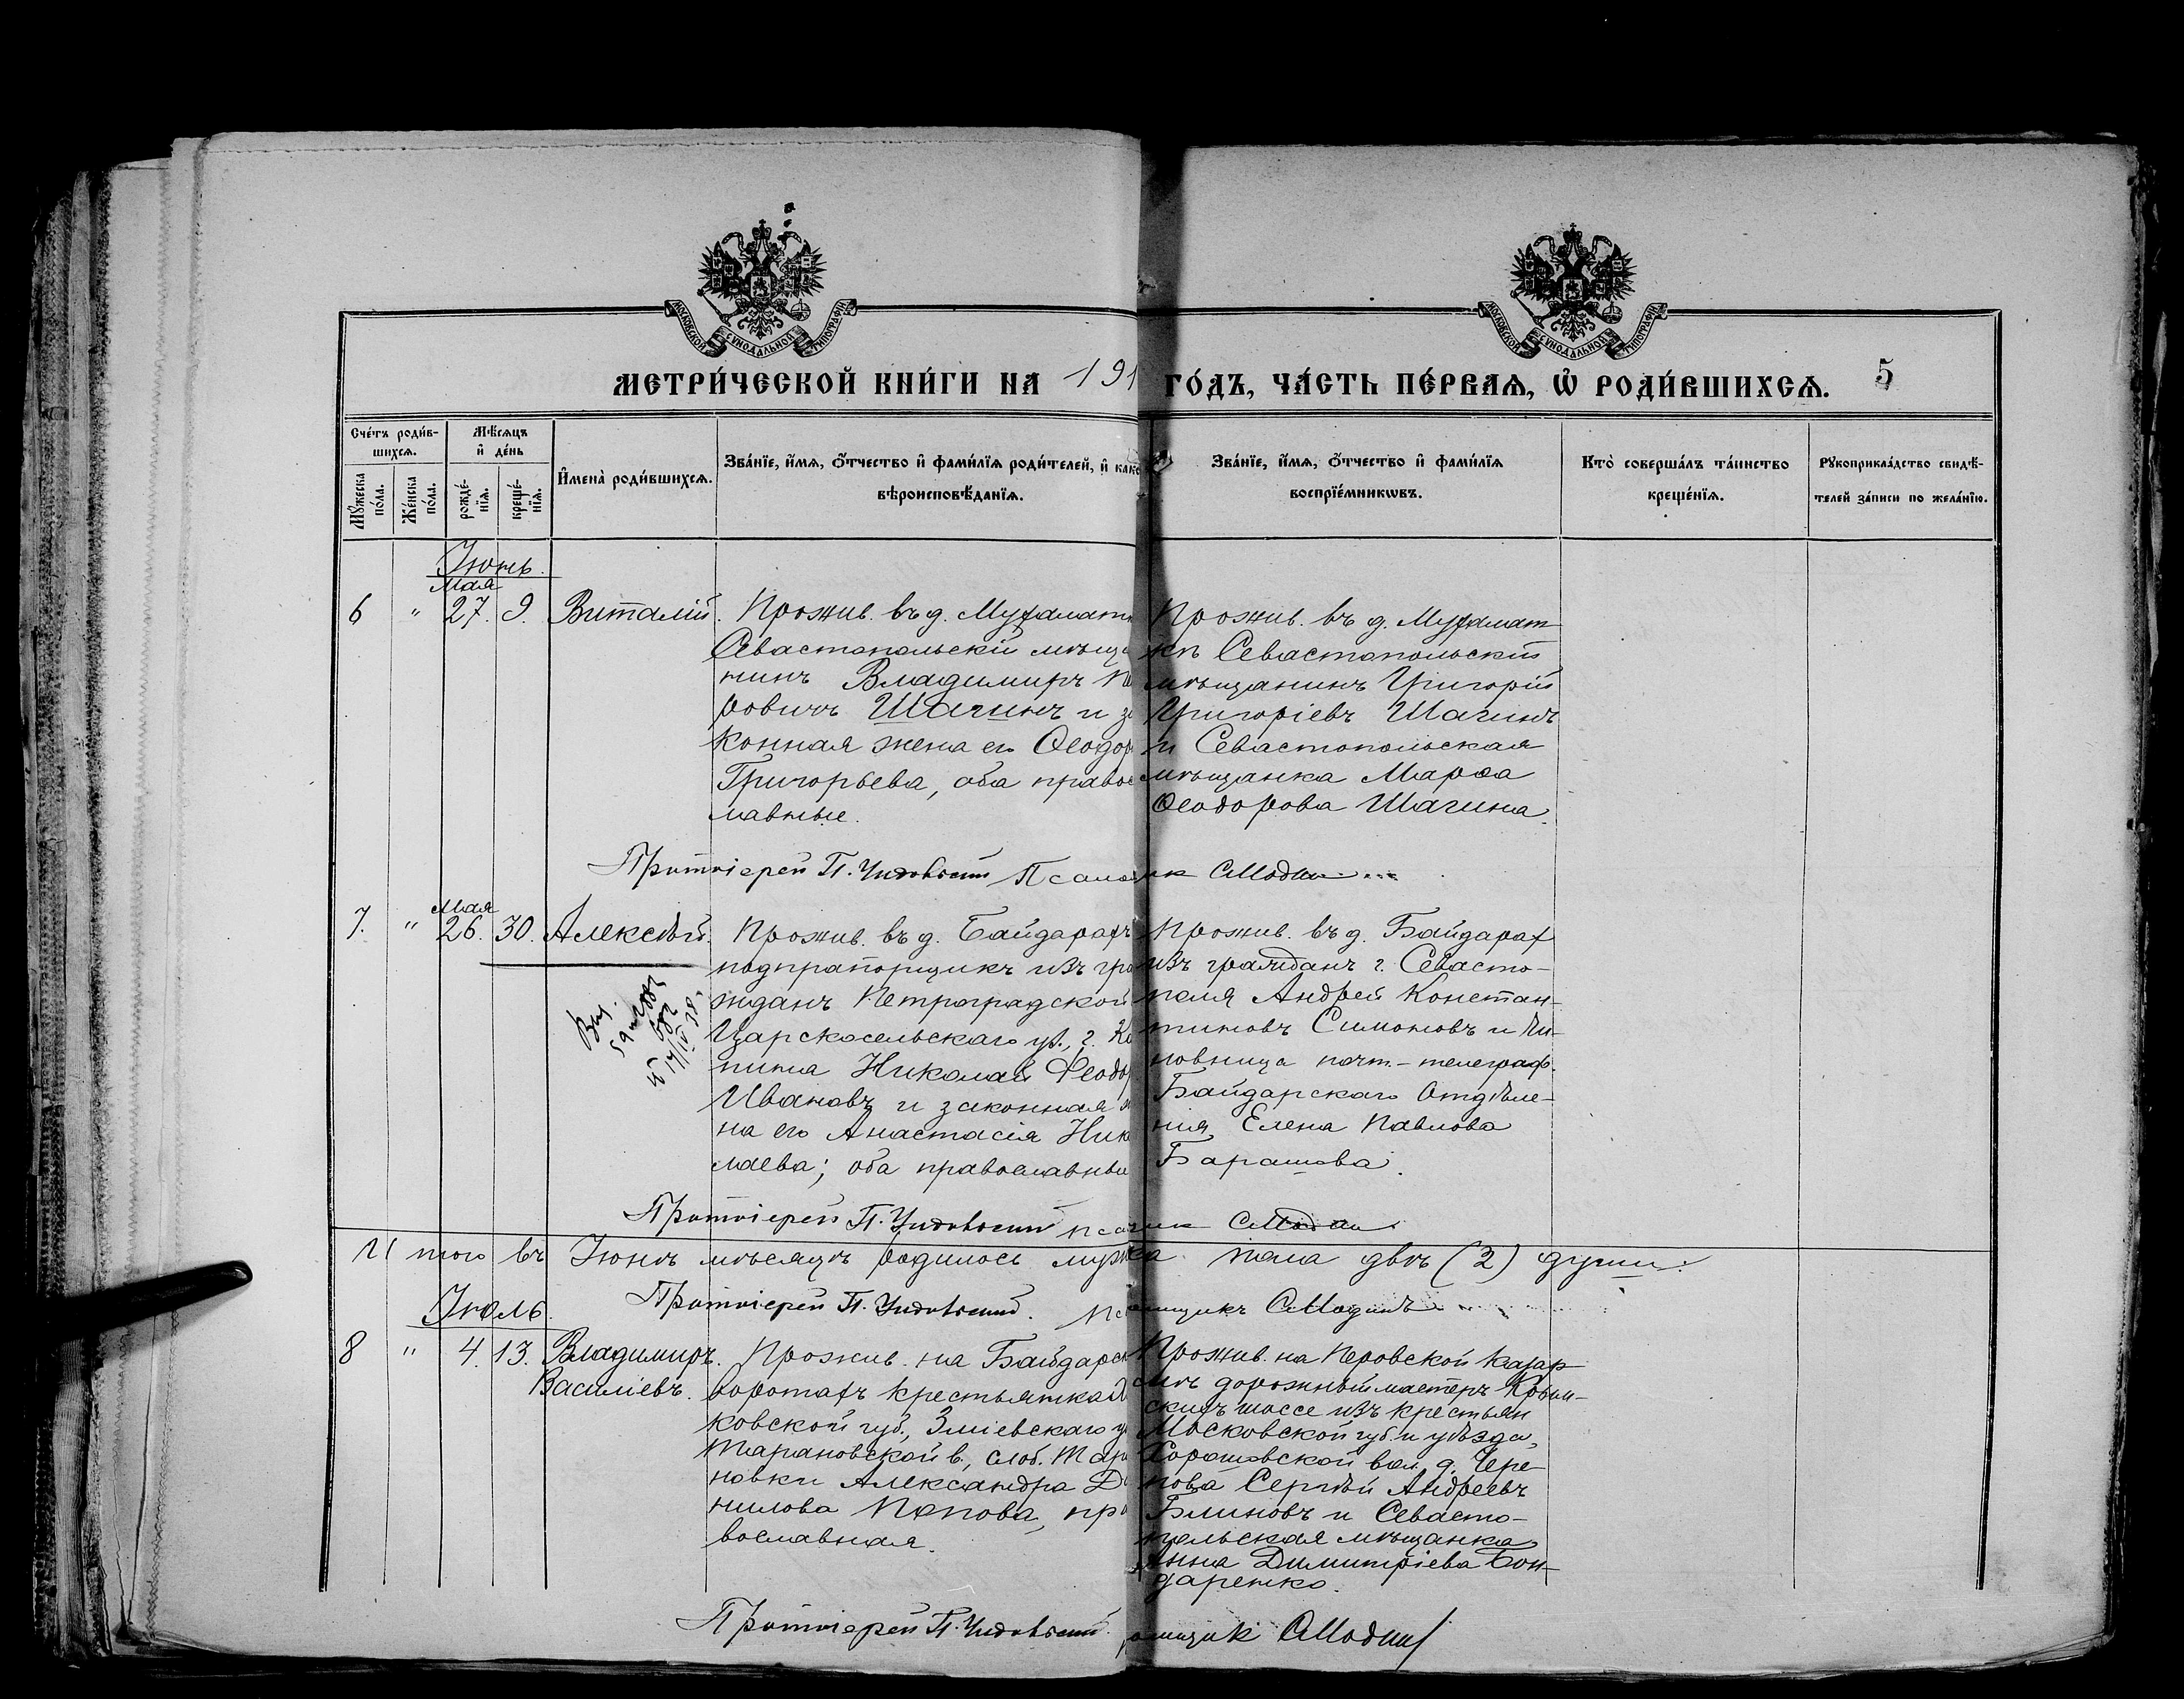 МОСКОВСКОЙ СУНОДАЛЬНОЙ ТИПОГРАФІИ
МОСКОВСКОЙ СУНОДАЛЬНОЙ ТИПОГРАФІИ
МЕТРИ́ЧЕСКОЙ КНИ́ГИ НА 191
ГО́ДЪ, ЧА́СТЬ ПЕ́РВАѦ, Ѡ҆ РОДИ́ВШИХСѦ. 5
Сче́тъ роди́в-
шихсѧ.
Мꙋ́жеска по́ла.
Же́нска по́ла.
Мѣ́сѧцъ
и҆ де́нь
рожде́-
нїѧ.
креще́-
нїѧ.
И҆мена̀ роди́вшихсѧ.
Зва́нїе, и҆́мѧ, ѻ҆́тчество и҆ фами́лїѧ роди́телей, и҆ како
вѣроисповѣ́данїѧ.
Зва́нїе, и҆́мѧ, ѻ҆́тчество и҆ фами́лїѧ
воспрїе́мникѡвъ.
Кто̀ соверша́лъ та́инство
креще́нїѧ.
Рꙋкоприкла́дство свидѣ́-
телей за́писи по жела́нїю.
Іюнь.
Мая
6 " 27. 9. Виталій.
Прожив. въ д. Мухалатк
Севастопольскій мѣща
нинъ Владимиръ П
ровичъ Шагинъ и за
конная жена его Ѳеодор
Григорьева, оба правос
лавные.
Прожив. въ д. Мухалат
кѣ Севастопольскій
мѣщанинъ Григорій
Григоріевъ Шагинъ
и Севастопольская
мѣщанка Марѳа
Ѳеодорова Шагина.
Протоіерей П. Псаломщик СМодин
Мая
7. " 26. 30. Алексѣй.
Прожив. въ д. Байдарахъ
подпрапорщикъ изъ гра
жданъ Петроградской
Царскосельскаго уѣ., г. Ко
пина Николай Ѳеодор
Ивановъ и законная же
на его Анастасія Нико
лаева; оба православны
Прожив. въ д. Байдарах
изъ гражданъ г. Севасто-
поля Андрей Констан-
тиновъ Симоновъ и чи-
новница почт.-телеграф.
Байдарскаго Отдѣле-
нія Елена Павлова
Барашова.
Протоіерей П. СМодин
Итого въ Іюнѣ мѣсяцѣ родилось мужска пола двѣ (2) души.
Іюль.
Протоіерей П. Псаломщикъ СМодинъ
8 " 4. 13. Владимиръ
Василіевъ.
Прожив. на Байдарск
воротахъ крестьянка Х
ковской губ., Зміевскаго у
Тарановской в., слоб. Тара
новки Александра Да
нилова Попова, пра
вославная.
Прожив. на Перовской казар
мѣ дорожный мастеръ Крым-
скихъ шоссе изъ крестьян
Московской губ. и уѣзда,
Хорошовской вол. д. Чере-
пова Сергѣй Андреевъ
Блиновъ и Севасто-
польская мѣщанка
Анна Димитріева Бон-
даренко.
Протоіерей П. омщик СМодин